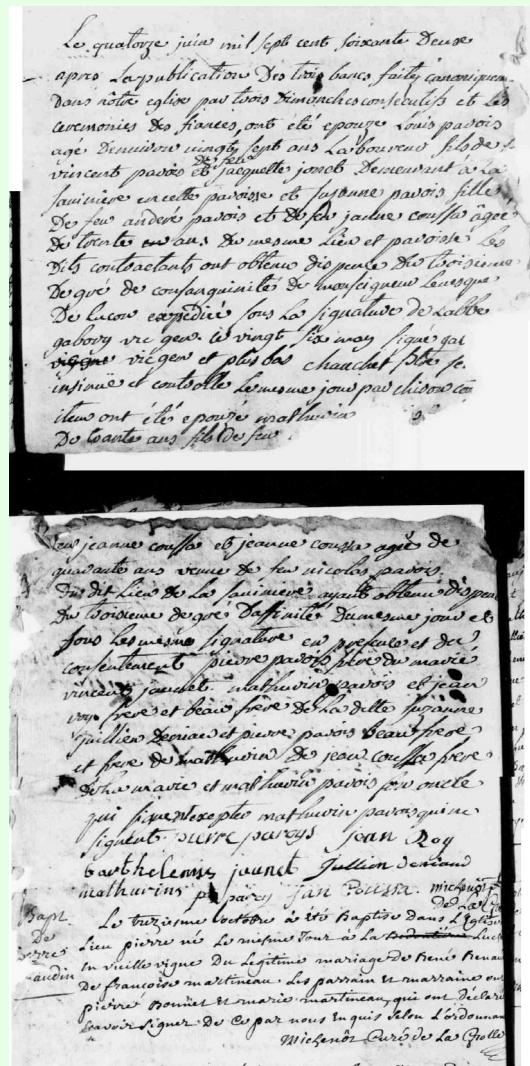 Le quatorze juin mil sept cent soixante Deux
apres La publication Des trois bancs faits canoniquem
Dans nôtre eglise par trois Dimanches consecutifs et Les
ceremonies Des fiances, ont été epouzé Louis pavois
agé Denviron vingt sept ans Laboureur fils de
vincent pavois et De feu jacquette jonet Demeurant à La
savinière en cette paroisse et suzanne pavois fille
De feu andere pavois et De feu janne coussa âgée
De trente en ans Du mesme Lieu et paroisse Les
Dits contractants ont obtenu dispence Du troisieme
Degré de consanguinité De monseigneur Levesque
De Lucon expédié sous La signature de Labbe
gabory vic gen. le vingt six may signé gab
vic gen et plus bas chauchet pbre se
insinué et controllé Le mesme jour par chison con
item ont été epouzé mathurin
De trante ans fils De feu
feu jeanne coussa et jeanne coussa agée de
quarante ans veuve de feu nicolas pavois
Du dit Lieu De La savinière ayant obtenu Dispen
Du troisieme Degré Daffinité Du mesme jour et
sous Les mesme signature en presence et du
consentement pierre pavois père du marié
vincent jounet mathurin pavois et jean
roy frere et beau frere De La ditte suzanne
jullien Deniaud et pierre pavois beau frere
et frere de mathurin De jean coussa frere
De La mariée et mathurin pavois son oncle
qui signent excepté mathurin pavois qui ne
signent. pierre paroys Jean Roy
barthelemy jaunet Jullien deniaud
mathurins paroys Jan Coussa. michenot
De La G
Bapt.
De
pierre
Laudin
Le treziesme octobre à eté Baptisé Dans L'Eglise
Lieu pierre né Le mesme Jour à La
un vieille vigne Du Legitime mariage de René Renau
De françoise martineau Les parrain et marraine on
pierre Bonnet et marie martineau, qui ont Déclaré
sçavoir signer De ce par nous Enquis selon L'ordonnan
Michenot Curé de La Grolle